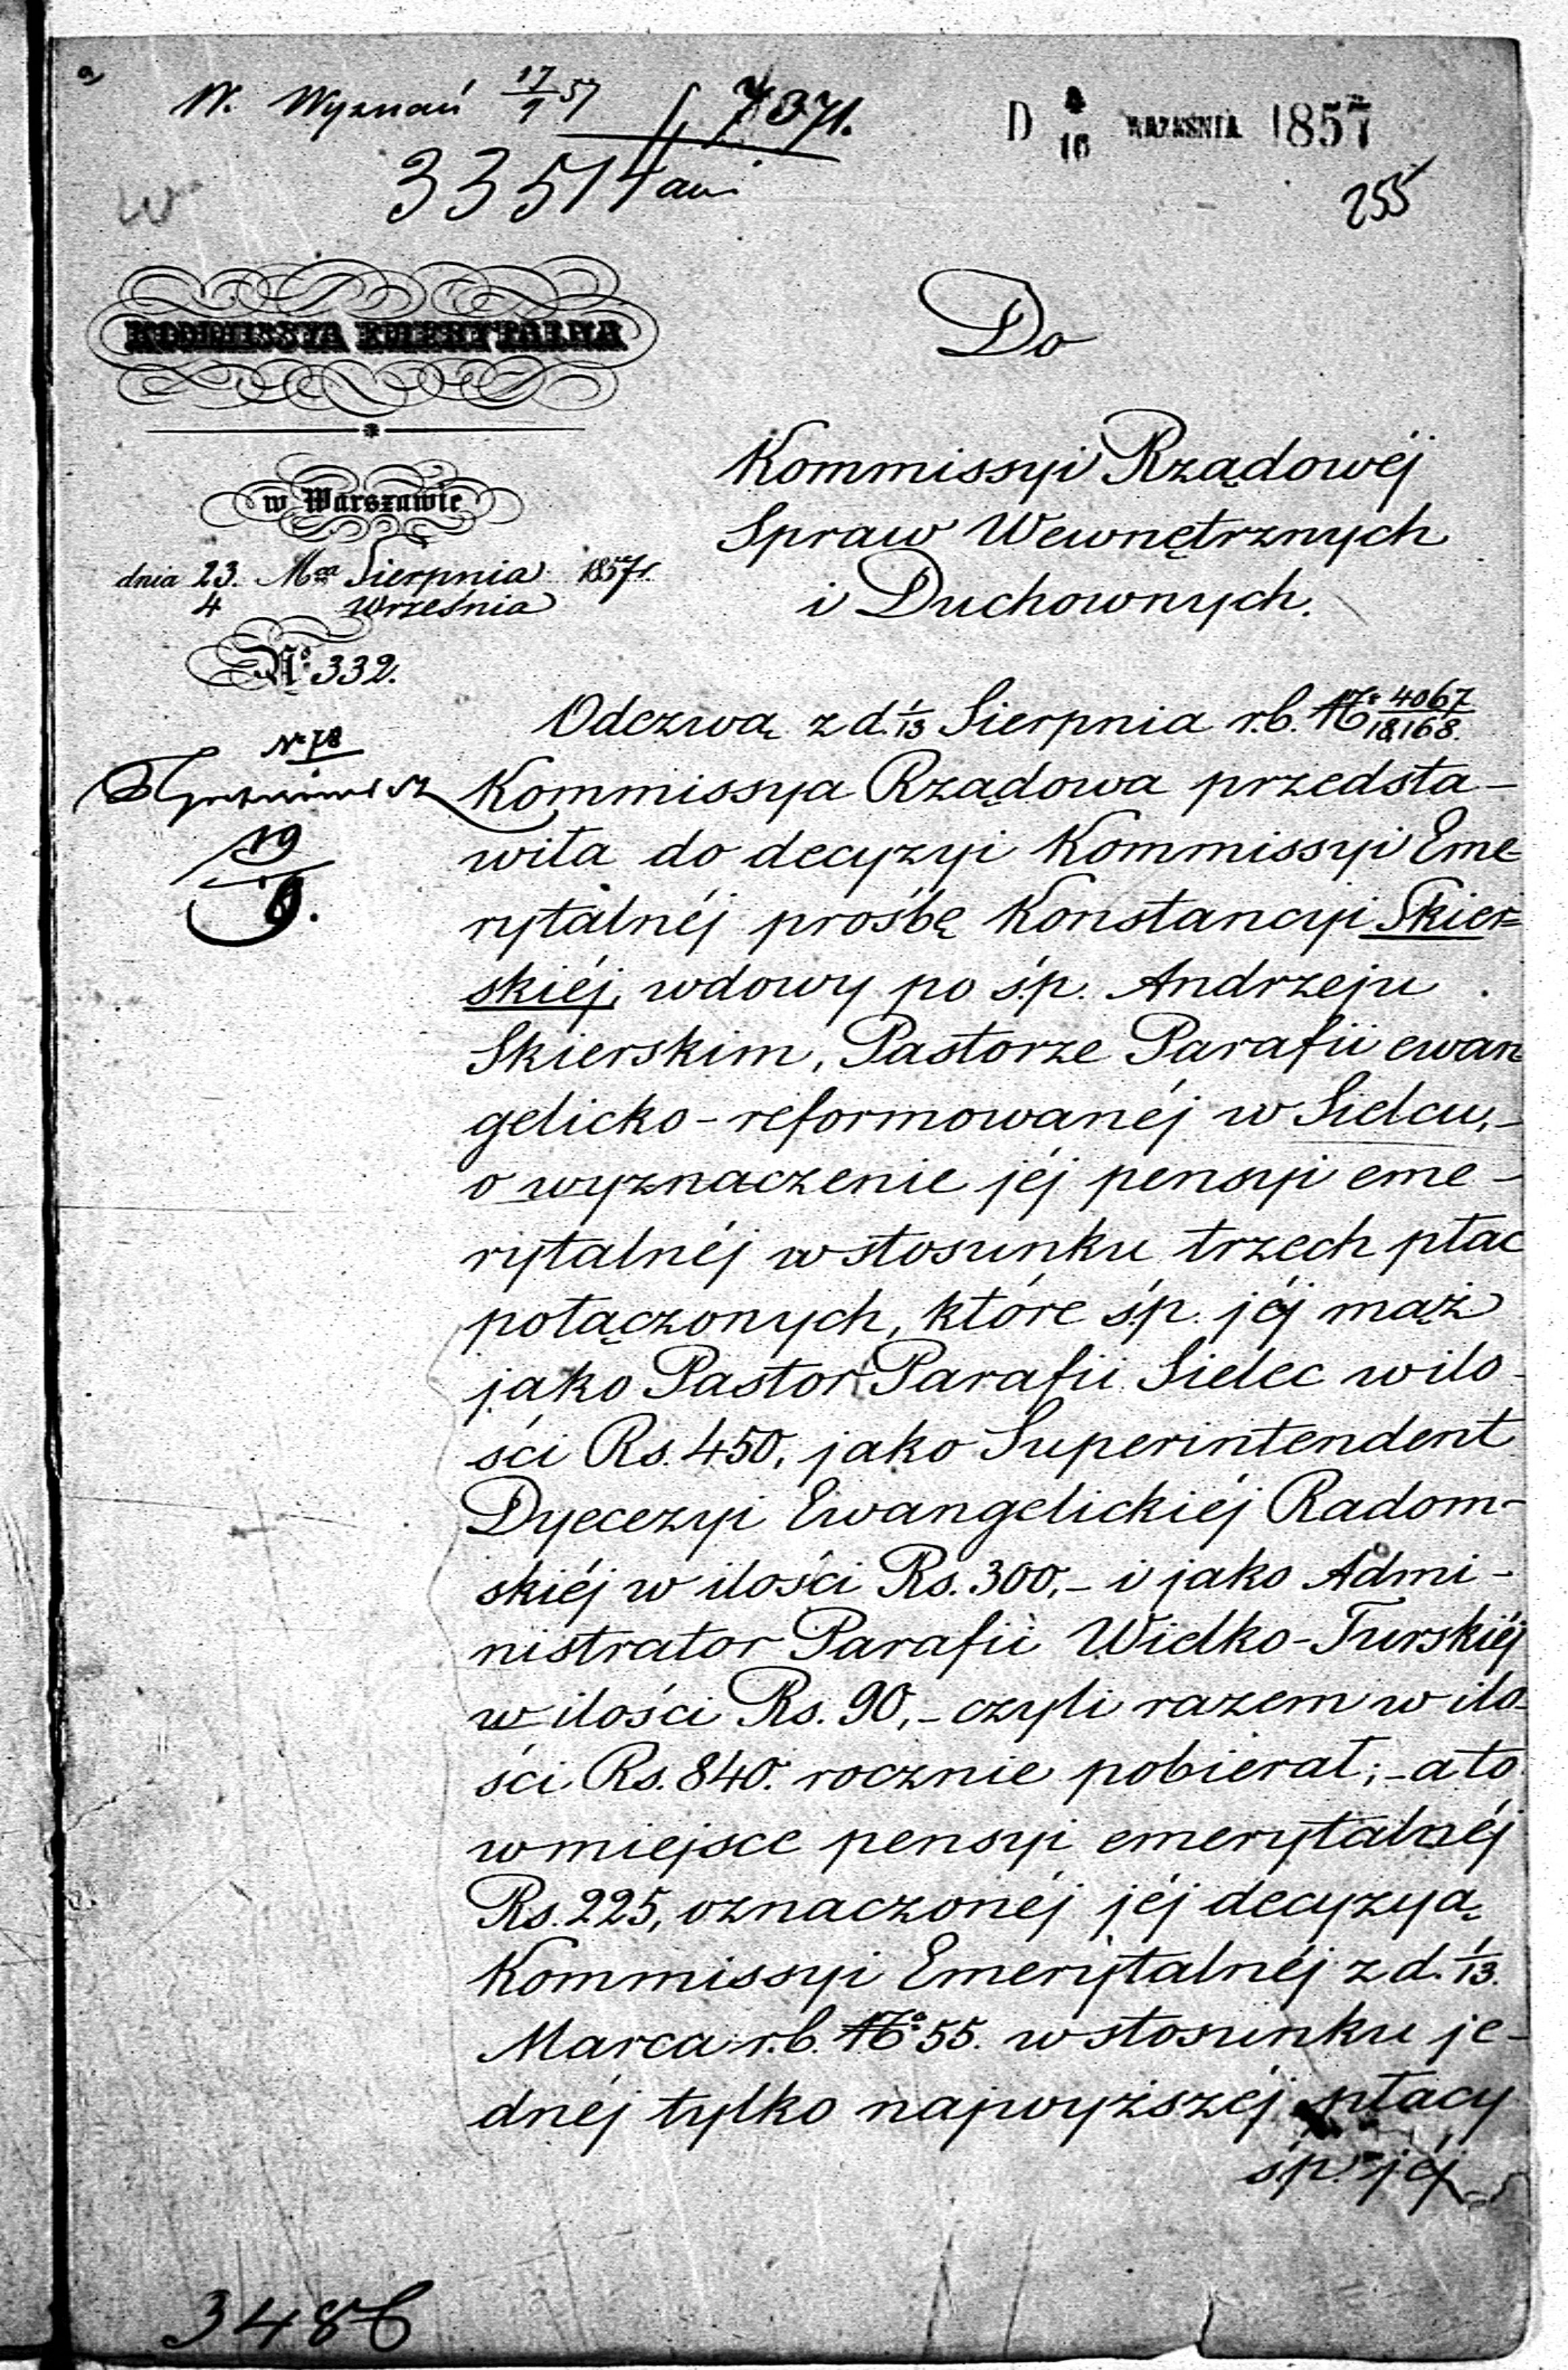 W. Wyznań 17/9 57 7371.
33514
D 4/16 WRZEŚNIA 1857
255
KOMMISSYA EMERYTALNA
w Warszawie
dnia 23. Mca Sierpnia 1857 r.
4 Września
No 332.
No 78
19
9.
Do
Kommissyi Rządowéj
Spraw Wewnętrznych
i Duchownych.
Odezwą z d. 1/13 Sierpnia r.b. No 4067/18,168.
Kommissya Rządowa przedsta-
wiła do decyzyi Kommissyi Eme-
rytalnéj prośbę Konstancyi Skier-
skiéj, wdowy po ś.p. Andrzeju
Skierskim, Pastorze Parafii ewan
gelicko-reformowanéj w Sielcu,-
o wyznaczenie jéj pensyi eme-
rytalnéj w stosunku trzech płac
połączonych, które ś.p. jéj mąż
jako Pastor Parafii Sielec w ilo-
ści Rs. 450, jako Superintendent
Dyecezyi Ewangelickiéj Radom-
skiéj w ilości Rs. 300,- i jako Admi-
nistrator Parafii Wielko-Turskiéj
w ilości Rs. 90,- czyli razem w ilo-
ści Rs. 840. rocznie pobierał;- a to
w miejsce pensyi emerytalnéj
Rs. 225, oznaczonéj jéj decyzyą
Kommissyi Emerytalnéj z d. 1/13.
Marca r.b. No 55. w stosunku je-
dnéj tylko najwyższéj płacy
ś.p. jéj
3486